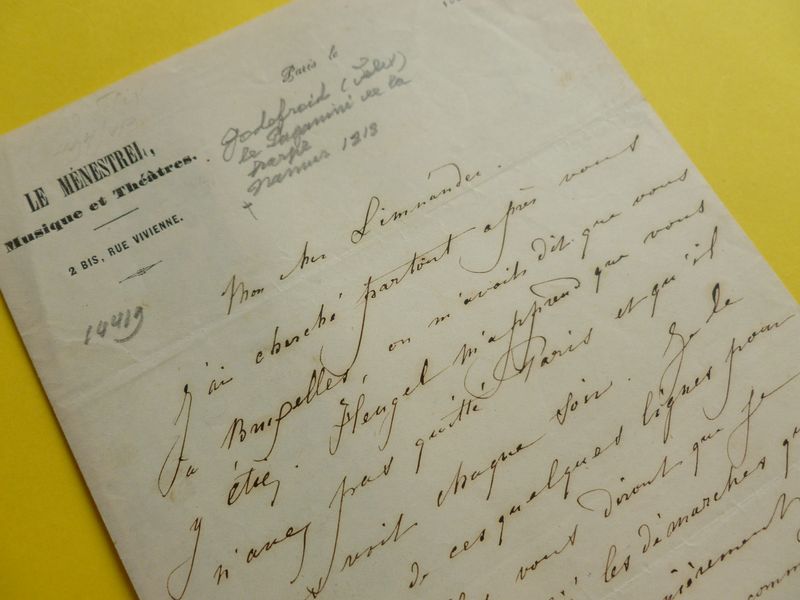 Paris le
LE MÉNESTREL,
Musique et Théâtres.
2 BIS, RUE VIVIENNE.
Godefroid (Félix)
le Paganini de la
harpe
Namur 1818
†
14419
Mon cher Limnander.
J'ai cherché partout après vous
à Bruxelles, on m'avait dit que vous
y étiez. Heugel m'apprend que vous
n'avez pas quitté Paris et qu'il
voit chaque soir. Je le
de ces quelques lignes pour
vous diront que je
les démarches